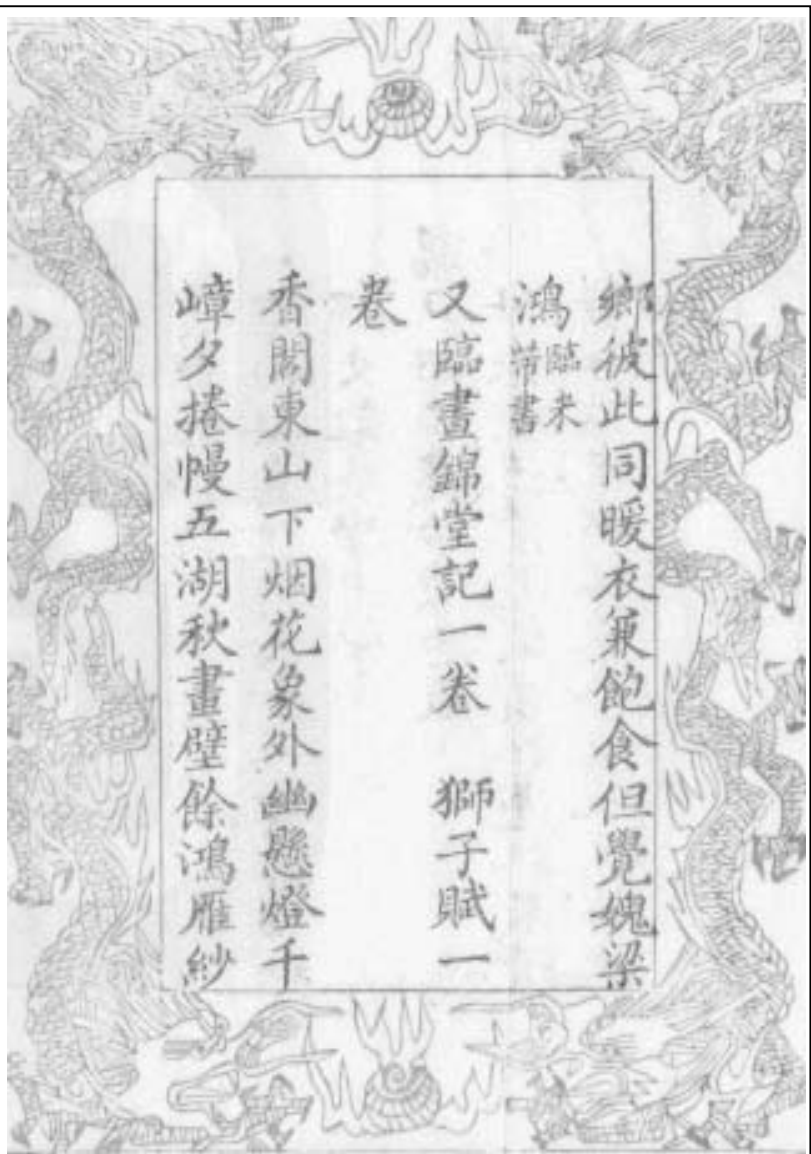 鄉彼此同暖衣兼飽食但覺媿梁
鴻臨米
芾書
又臨晝錦堂記一卷　獅子賦一
卷
香閣東山下烟花象外幽懸燈千
嶂夕捲幔五湖秋畫壁餘鴻雁紗